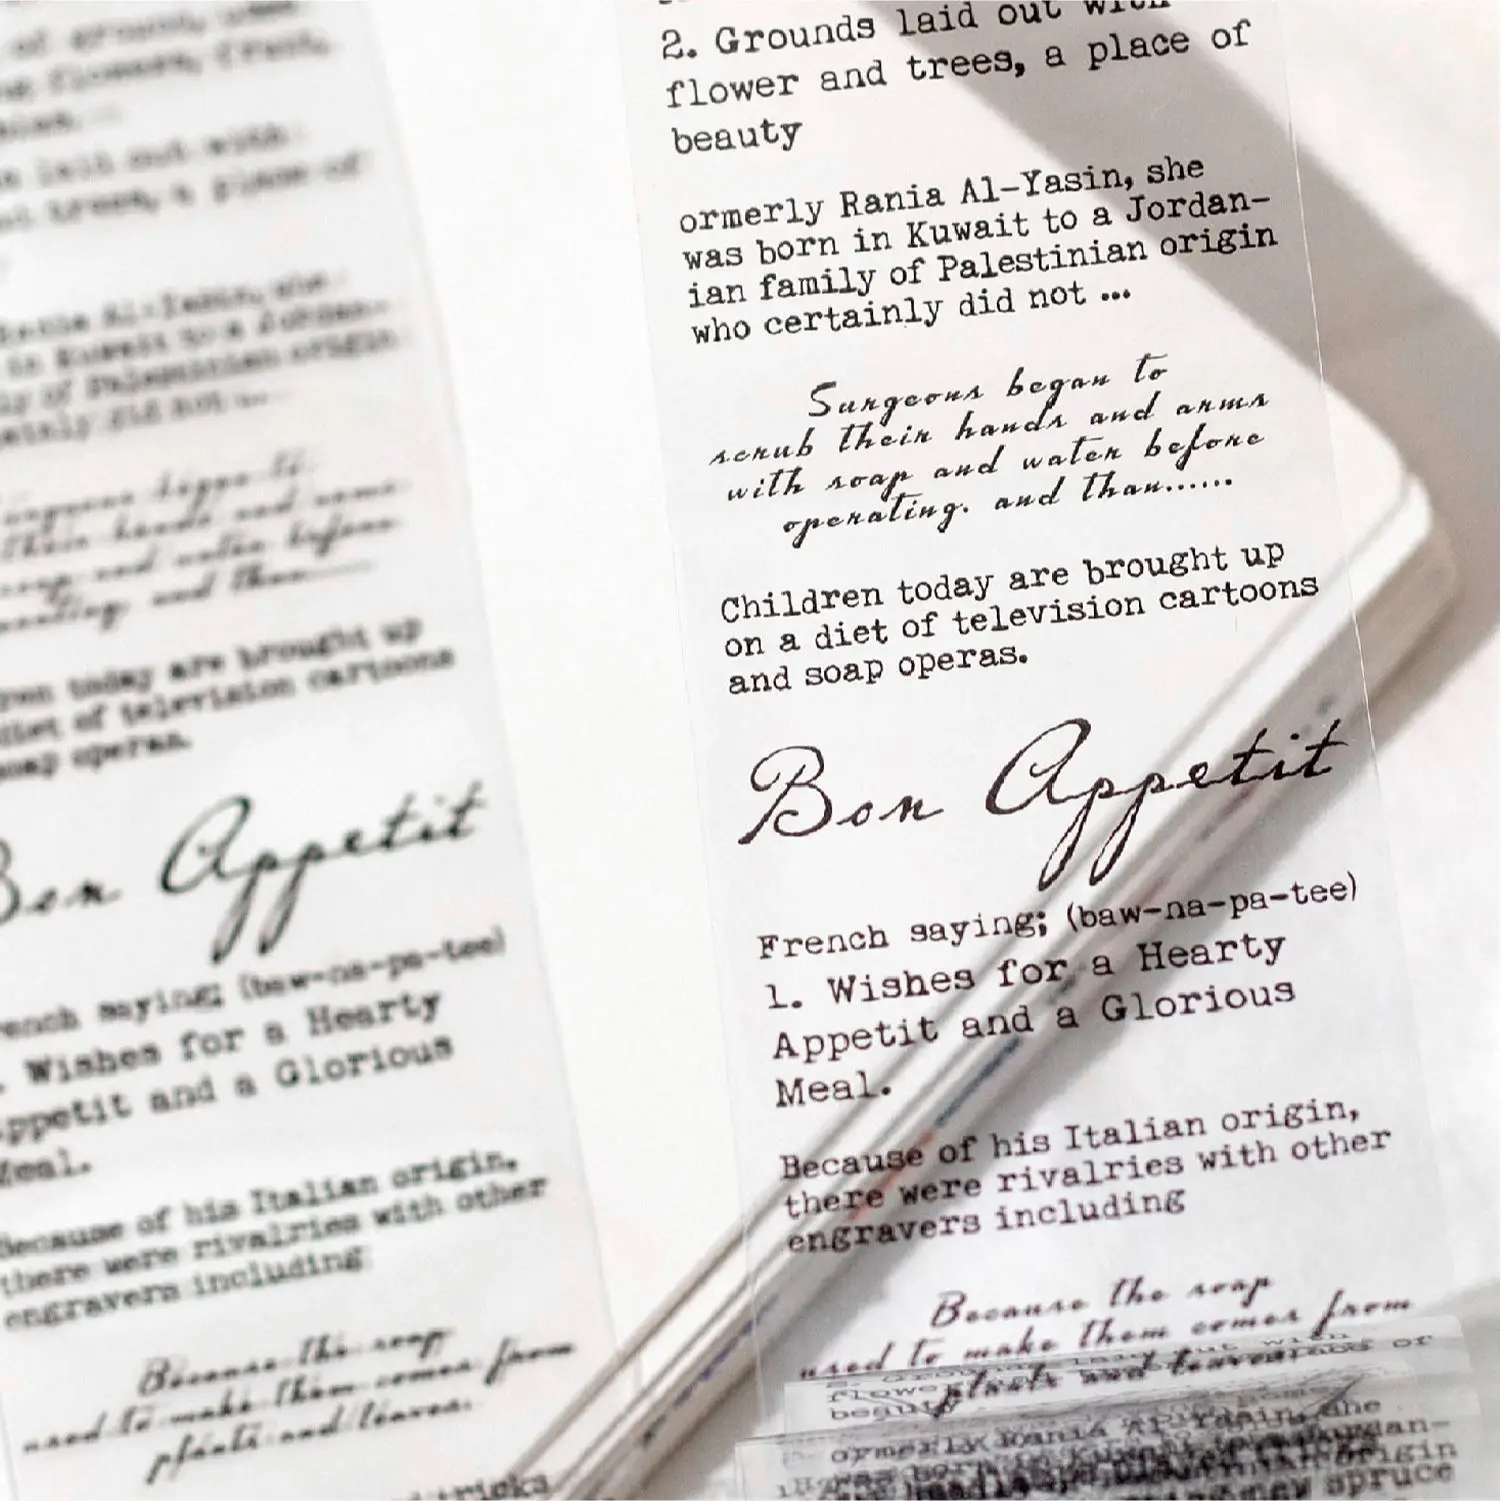 2. Grounds laid out with
flower and trees, a place of
beauty
ormerly Rania Al-Yasin, she
was born in Kuwait to a Jordan-
ian family of Palestinian origin
who certainly did not ...
Surgeons began to
scrub their hands and arms
with soap and water before
operating. and than......
Children today are brought up
on a diet of television cartoons
and soap operas.
Bon Appetit
French saying; (baw-na-pa-tee)
1. Wishes for a Hearty
Appetit and a Glorious
Meal.
Because of his Italian origin,
there were rivalries with other
engravers including
Because the soap
used to make them comes from
plants and leaves
of ground,
flowers, fruit,
laid out with
trees, a place of
Rania Al-Yasin, she
in Kuwait to a Jordan-
of Palestinian origin
did not ...
Surgeons began to
their hands and arms
soap and water before
and than......
today are brought up
diet of television cartoons
soap operas.
Bon Appetit
French saying; (baw-na-pa-tee)
Wishes for a Hearty
Appetit and a Glorious
Meal.
Because of his Italian origin,
there were rivalries with other
engravers including
Because the soap
used to make them comes from
plants and leaves.
flower
beauty
spruce